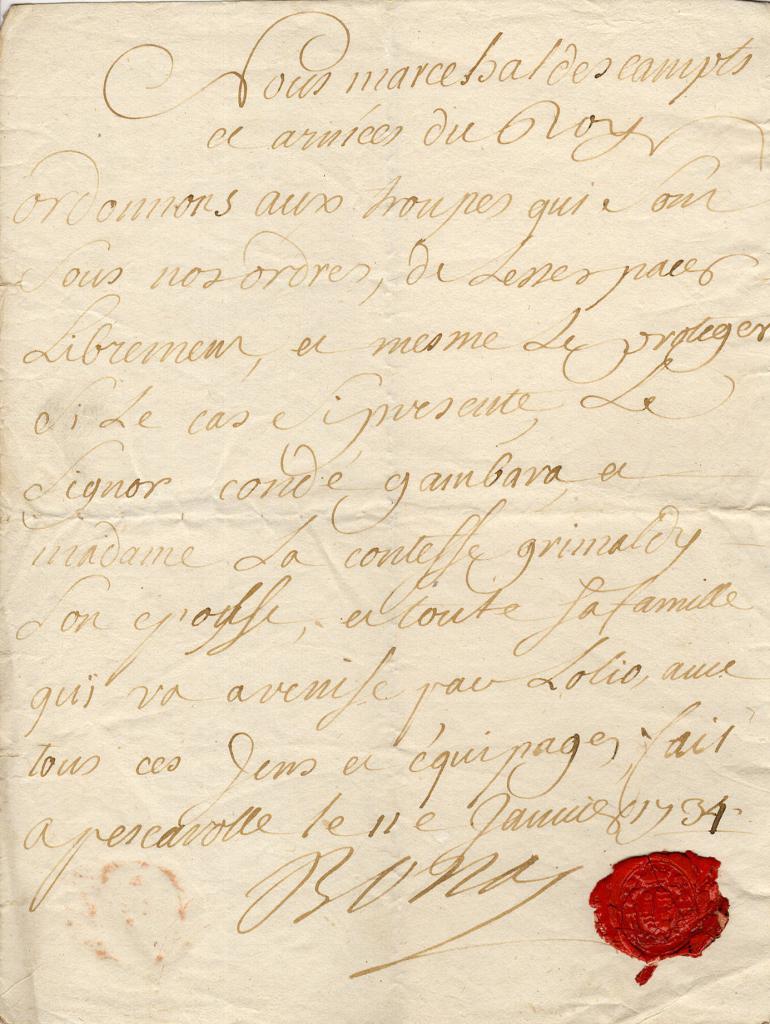 Nous marechal des campts
et armées du Roy
ordonnons aux troupes qui sont
sous nos ordres, de Lesser pacer
Librement, et mesme Le proteger
si Le cas si presente, Le
signor condé gambara, et
madame La contesse grimaldy
son epousse, et toute sa famille
qui va a venise par Lolio, avec
tous ces Jens et équipages, fait
a pescarolle le 11e Janvier 1734